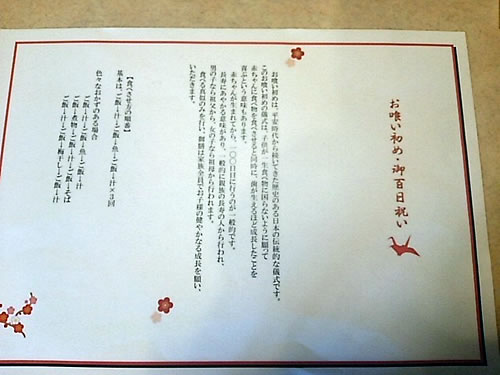 お喰い初め・御百日祝い
お喰い初めは、平安時代から続いてきた歴史のある日本の伝統的な儀式です。
このお喰い初めの儀式は、子供が一生食べ物に困らないように願って
赤ちゃんに食べ物を食べさせると同時に、歯が生えるほど成長したことを
喜ぶという意味もあります。
赤ちゃんが生まれてから、一〇〇日目に行うのが一般的です。
長寿にあやかる意味があり、一般的に親族の長寿の人から行われ、
男の子なら祖父から、女の子なら祖母から行われます。
食べる真似のみを行い、御膳は家族全員でお子様の健やかなる成長を願い、
いただきます。
【食べさせ方の順番】
基本は、ご飯→汁→ご飯→魚→ご飯→汁×三回
色々なおかずのある場合
ご飯→汁→ご飯→魚→ご飯→汁
ご飯→煮物→ご飯→汁→ご飯→そば
ご飯→汁→ご飯→梅干し→ご飯→汁